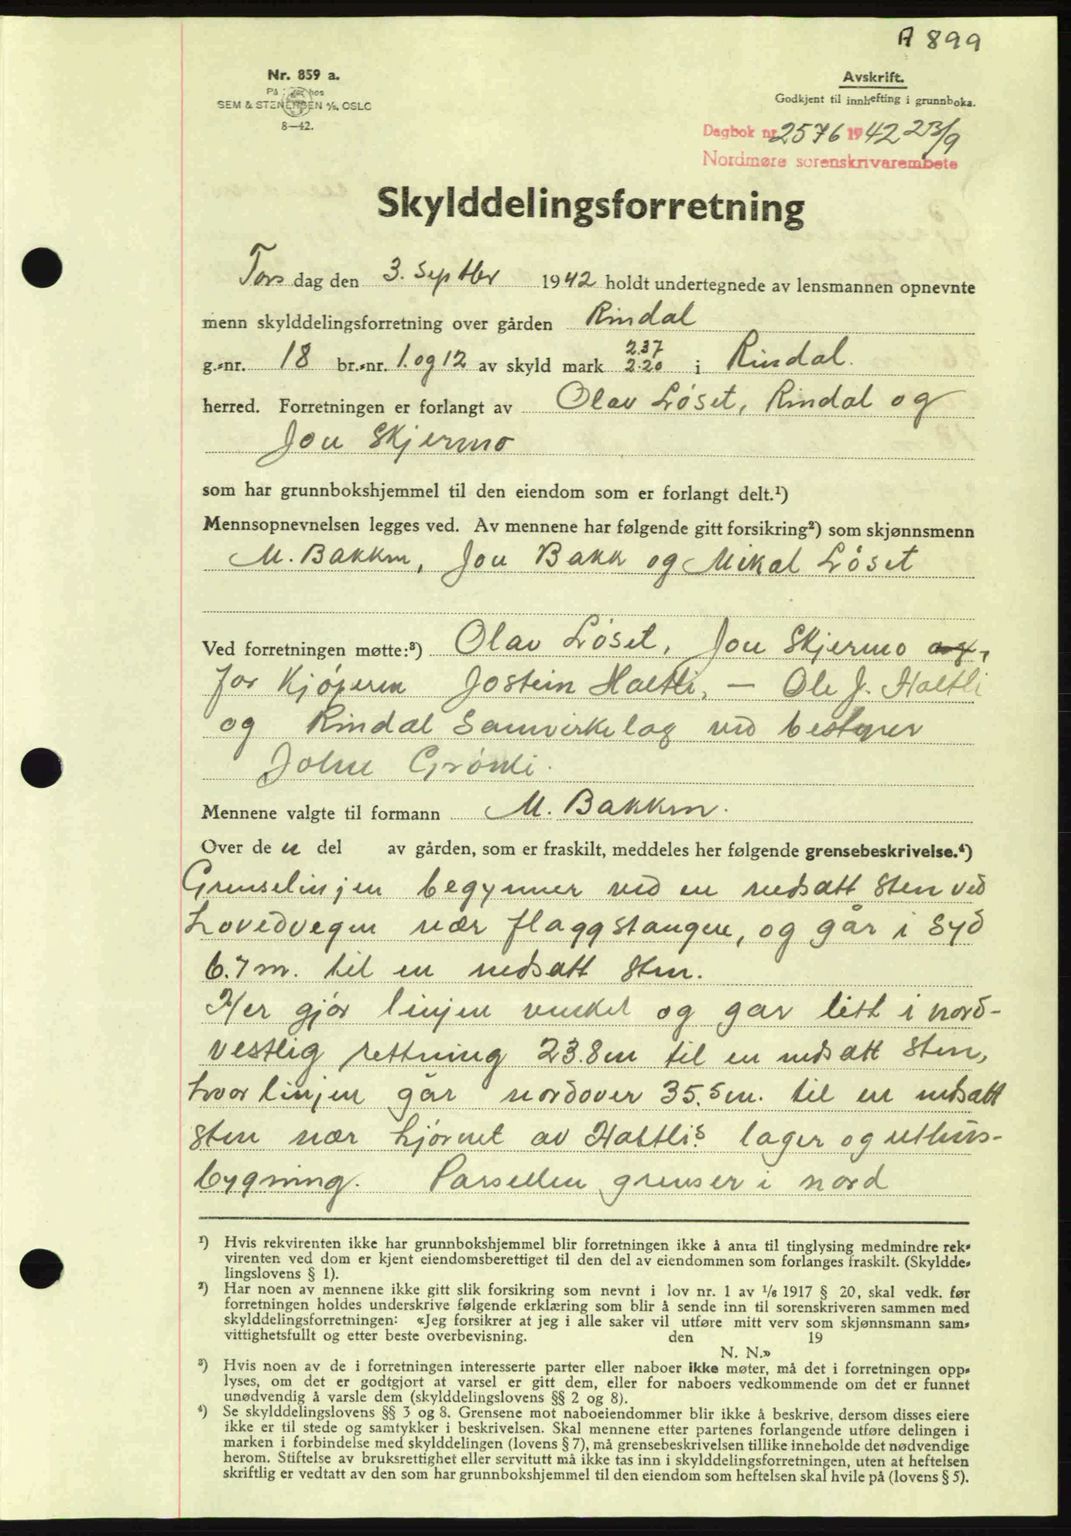 A 899
Nr. 859 a.
På lager hos
SEM & STENERSEN A/S, OSLO
8—42.
Avskrift.
Godkjent til innhefting i grunnboka.
Dagbok nr. 2576 1942 23/9
Nordmøre sorenskrivarembete
Skylddelingsforretning
Tors dag den 3. Septbr 1942 holdt undertegnede av lensmannen opnevnte
menn skylddelingsforretning over gården Rindal
2.37
g.-nr. 18 br.-nr. 1. og 12 av skyld mark 2.20 i Rindal.
herred. Forretningen er forlangt av Olav Løset, Rindal og
Jon Skjermo
som har grunnbokshjemmel til den eiendom som er forlangt delt.¹)
Mennsopnevnelsen legges ved. Av mennene har følgende gitt forsikring²) som skjønnsmenn
M. Bakken, Jon Bakk og Mikal Løset
Ved forretningen møtte:³) Olav Løset, Jon Skjermo og,
for Kjøperen Jostein Haltli, — Ole J. Haltli
og Rindal Samvirkelag ved bestyrer
John Grønli.
Mennene valgte til formann M. Bakken.
Over de n del av gården, som er fraskilt, meddeles her følgende grensebeskrivelse.⁴)
Grenselinjen begynner ved en nedsatt sten ved
hovedvegen nær flaggstangen, og går i syd
6.7 m. til en nedsatt sten.
Her gjør linjen vinkel og går litt i nord-
vestlig rettning 23.8 m til en nedsatt sten,
hvor linjen går nordover 35.5 m. til en nedsatt
sten nær hjørnet av Haltli's lager og uthus-
bygning. Parsellen grenser i nord
¹) Hvis rekvirenten ikke har grunnbokshjemmel blir forretningen ikke å anta til tinglysing medmindre rek-
virenten ved dom er kjent eiendomsberettiget til den del av eiendommen som forlanges fraskilt. (Skyldde-
lingslovens § 1).
²) Har noen av mennene ikke gitt slik forsikring som nevnt i lov nr. 1 av 1/6 1917 § 20, skal vedk. før
forretningen holdes underskrive følgende erklæring som blir å sende inn til sorenskriveren sammen med
skylddelingsforretningen: «Jeg forsikrer at jeg i alle saker vil utføre mitt verv som skjønnsmann sam-
vittighetsfullt og etter beste overbevisning. den 19
N. N.»
³) Hvis noen av de i forretningen interesserte parter eller naboer ikke møter, må det i forretningen opp-
lyses, om det er godtgjort at varsel er gitt dem, eller for naboers vedkommende om det er funnet
unødvendig å varsle dem (skylddelingslovens §§ 2 og 8).
⁴) Se skylddelingslovens §§ 3 og 8. Grensene mot naboeiendommer blir ikke å beskrive, dersom disses eiere
ikke er til stede og samtykker i beskrivelsen. Skal mennene etter partenes forlangende utføre delingen i
marken i forbindelse med skylddelingen (lovens § 7), må grensebeskrivelsen tillike inneholde det nødvendige
herom. Stiftelse av bruksrettighet eller servitutt må ikke tas inn i skylddelingsforretningen, uten at heftelsen
skriftlig er vedtatt av den som har grunnbokshjemmel til den eiendom som heftelsen skal hvile på (lovens § 5).